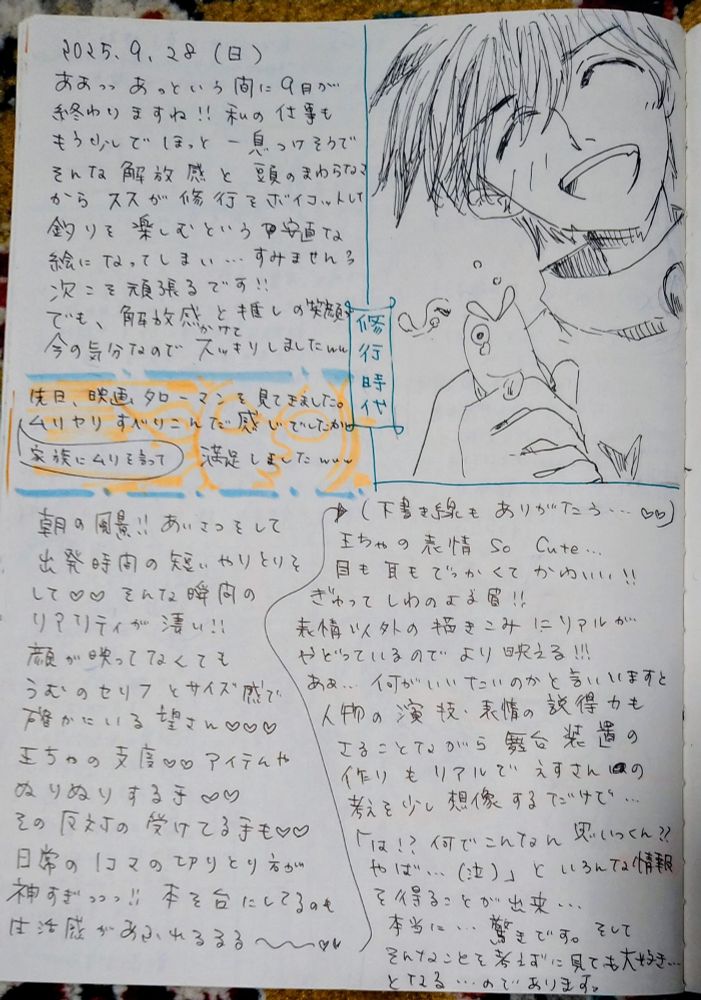 2025.9.28(日)
ああっっ あっという間に9月が
終わりますね!! 私の仕事も
もう少しでほっと一息つけそうで
そんな解放感と頭のまわらなさ
からススが修行をボイコットして
釣りを楽しむという安直な
絵になってしまい…すみませんる
次こそ頑張るです!!
でも、解放感と推しの笑顔
かけて
今の気分なのでスッキリしましたww
先日、映画タローマンを見てきました。
ムリヤリすべりこんだ感じでしたが
家族にムリを言って 満足しましたwww
修行時代
朝の風景!! あいさつをして
出発時間の短いやりとりを
して♡♡ そんな瞬間の
リアリティが凄い!!
顔が映ってなくても
うむのセリフとサイズ感で
確かにいる望さん♡♡♡
王ちゃの支度♡♡ アイテムや
ぬりぬりする手♡♡
その反対の受けてる手も♡♡
日常の1コマの切りとり方が
神すぎっっっ!! 本を台にしてるのも
生活感があふれるるる〜〜〜♡♡
(下書き線もありがたう…♡♡)
王ちゃの表情 So Cute…
目も耳もでっかくてかわいい!!
ぎゅってしわのよる眉!!
表情以外の描きこみにリアルが
やどっているのでより映える!!!
あぁ…何がいいたいのかと言いいますと
人物の演技・表情の説得力も
さることながら舞台装置の
作りもリアルでえすさんの
考えを少し想像するだけで…
「は!? 何でこんなん思いつくん??
やば…(泣)」といろんな情報
を得ることが出来…
本当に…驚きです。そして
そんなことを考えずに見ても大好き…
となる…のであります。